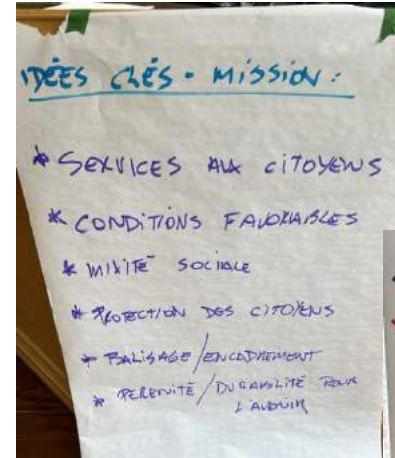 IDÉES CLÉS - MISSION :
* SERVICES AUX CITOYENS
* CONDITIONS FAVORABLES
* MIXITÉ SOCIALE
* PROTECTION DES CITOYENS
* BALISAGE / ENCADREMENT
* PERENITÉ / DURABILITÉ POUR
L'AVENIR